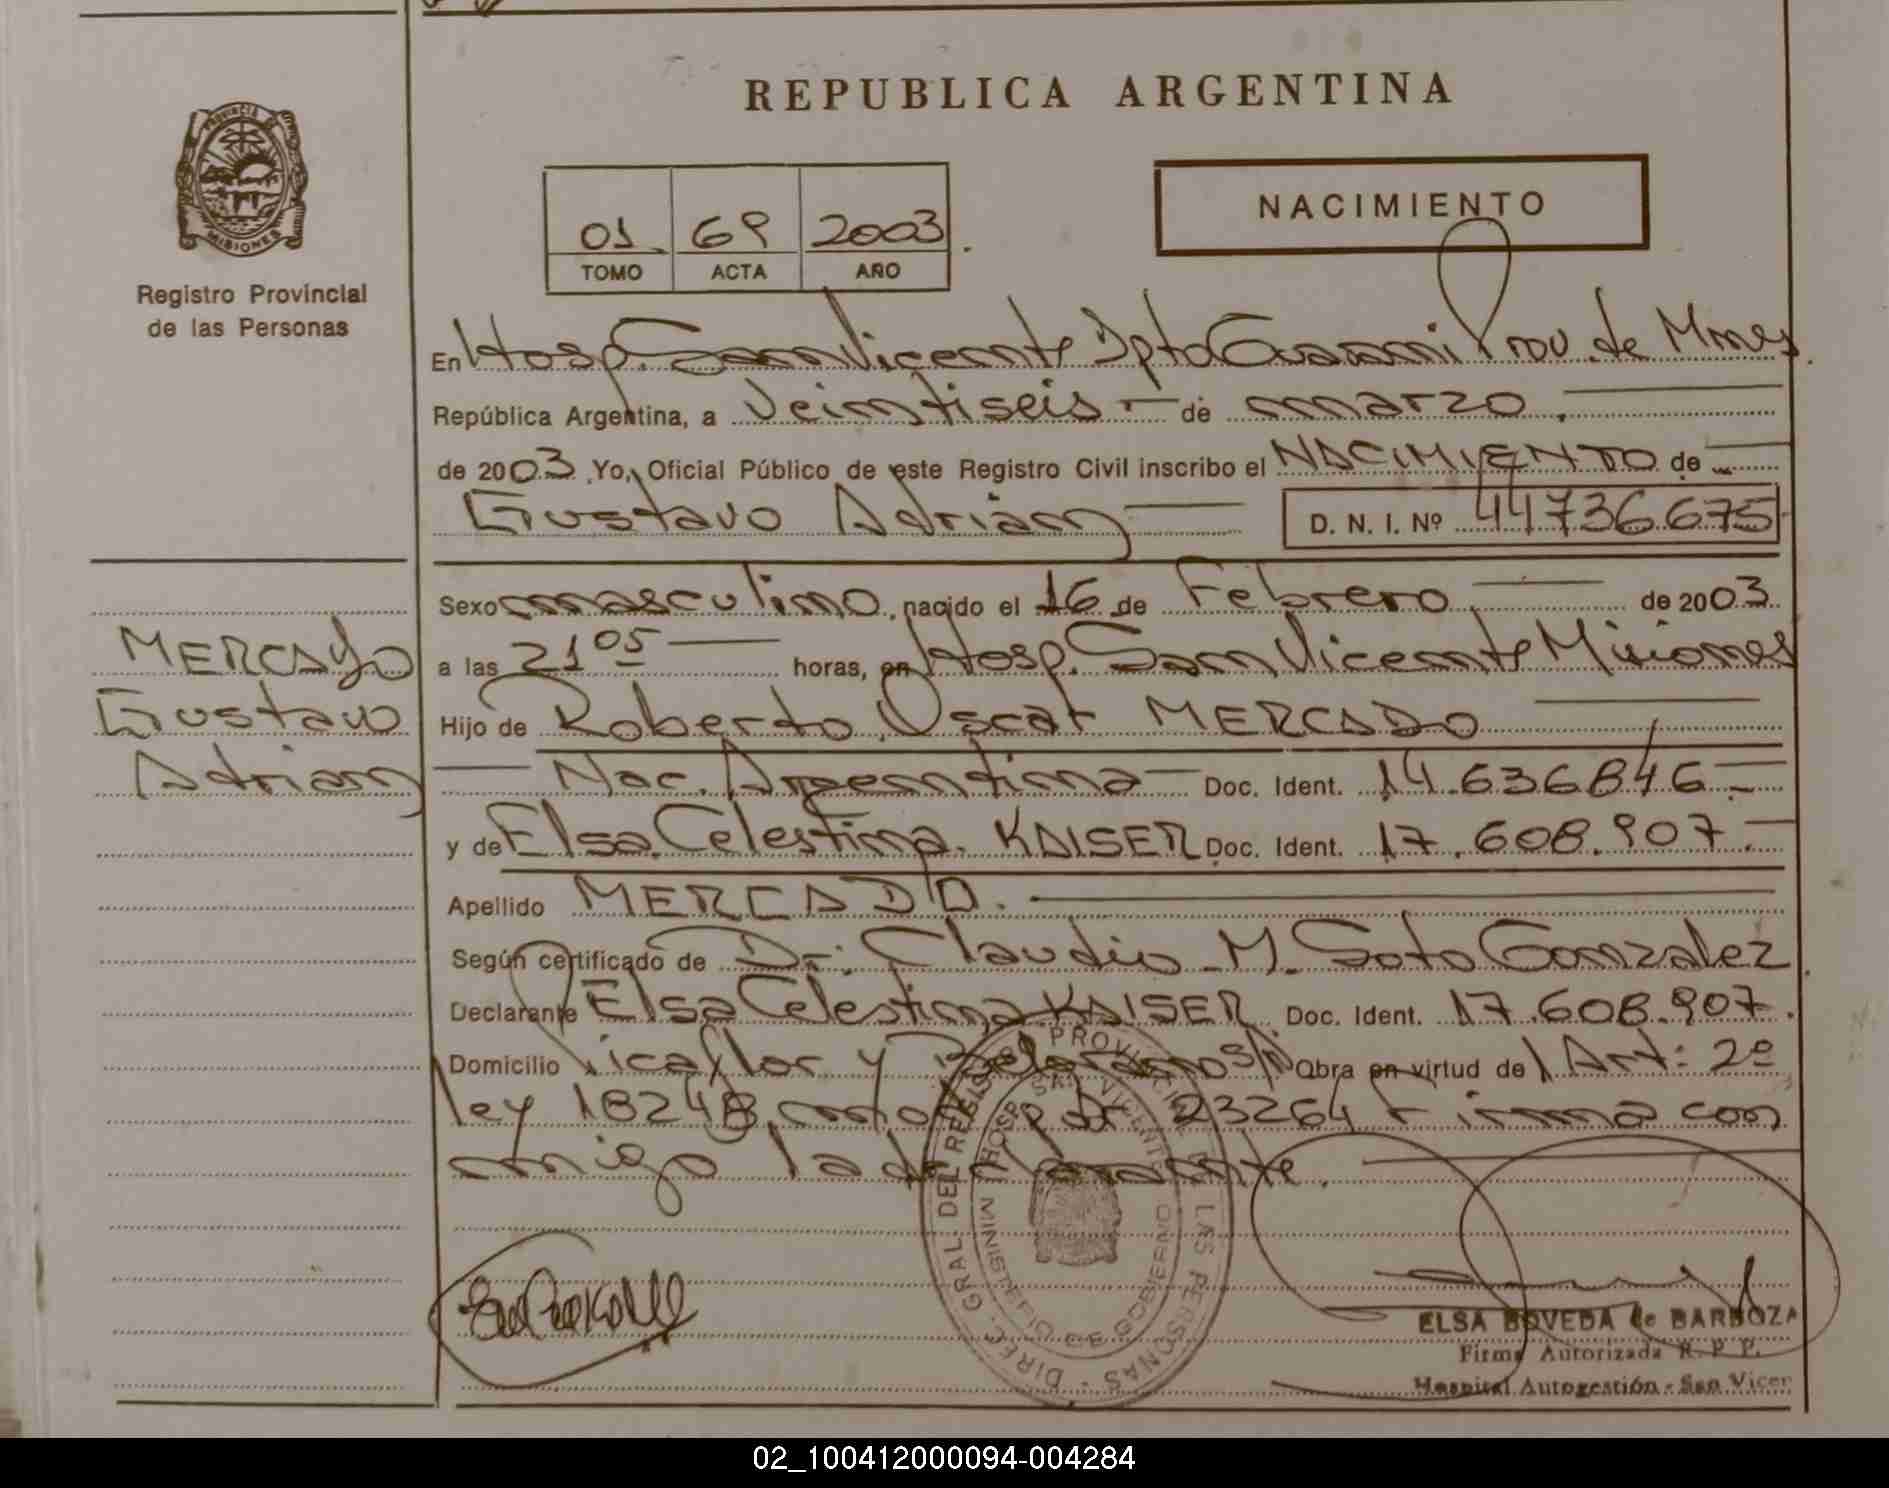 REPUBLICA ARGENTINA
PROVINCIA DE
MISIONES
Registro Provincial
de las Personas
01 69 2003
TOMO ACTA AÑO
NACIMIENTO
En Hosp. San Vicente Dpto Guarani Prov. de Mnes.
República Argentina, a Veintiseis - de marzo.
de 2003. Yo, Oficial Público de este Registro Civil inscribo el NACIMIENTO de
Gustavo Adrian D. N. I. Nº 44736675
Sexo masculino, nacido el 16 de Febrero de 2003
a las 21 05 horas, en Hosp. San Vicente Misiones
Hijo de Roberto Oscar MERCADO
Nac. Argentina Doc. Ident. 14.636846
y de Elsa Celestina KAISER Doc. Ident. 17.608.907
Apellido MERCADO.
Según certificado de Dr. Claudio M. Soto Gonzalez
Declarante Elsa Celestina KAISER Doc. Ident. 17.608.907.
Domicilio Picaflor y S/N Obra en virtud del Art: 2º
ley 18248 mod. por 23264 Firma con
migo la declarante.
MERCADO
Gustavo
Adrian
DIREC. GRAL. DEL REGISTRO PROVINCIAL DE LAS PERSONAS
HOSP. SAN VICENTE
MINISTERIO DE GOBIERNO
ELSA BOVEDA de BARBOZA
Firma Autorizada R. P. P.
Hospital Autogestión - San Vicen
02_100412000094-004284